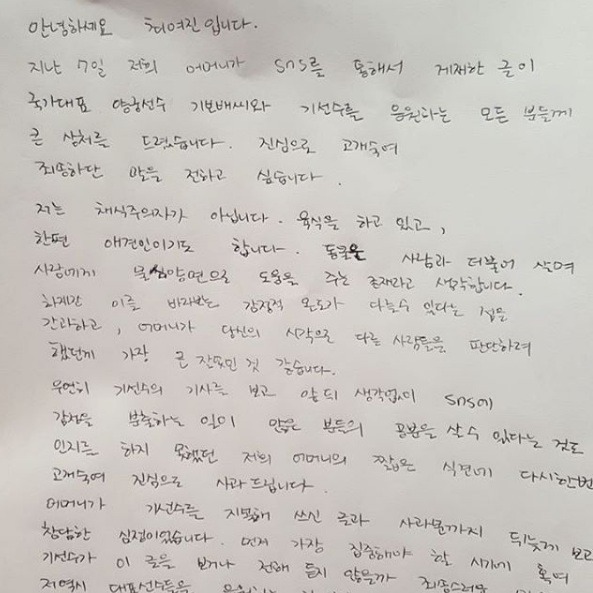 안녕하세요 최여진입니다.
지난 7일 저희 어머니가 sns를 통해서 게재한 글이
국가대표 양궁선수 기보배씨와 기선수를 응원하는 모든 분들께
큰 상처를 드렸습니다. 진심으로 고개숙여
죄송하단 말을 전하고 싶습니다.
저는 채식주의자가 아닙니다. 육식을 하고 있고,
한편 애견인이기도 합니다. 동물은 사람과 더불어 살며
사람에게 물심양면으로 도움을 주는 존재라고 생각합니다.
하지만 이를 바라보는 감정적 온도가 다를수 있다는 점을
간과하고, 어머니가 당신의 시각으로 다른 사람들을 판단하려
했던게 가장 큰 잘못인 것 같습니다.
우연히 기선수의 기사를 보고 앞뒤 생각없이 sns에
감정을 분출하는 일이 많은 분들의 공분을 살 수 있다는 점도
인지를 하지 못했던 저희 어머니의 짧은 식견에 다시한번
고개숙여 진심으로 사과드립니다.
어머니가 기선수를 지목해 쓰신 글과 사과문까지 뒤늦게 보고
참담한 심정이었습니다. 먼저 가장 집중해야 할 시기에 혹여
기선수가 이 글을 보거나 전해 듣지 않을까 죄송스러운
저역시 대표선수들을